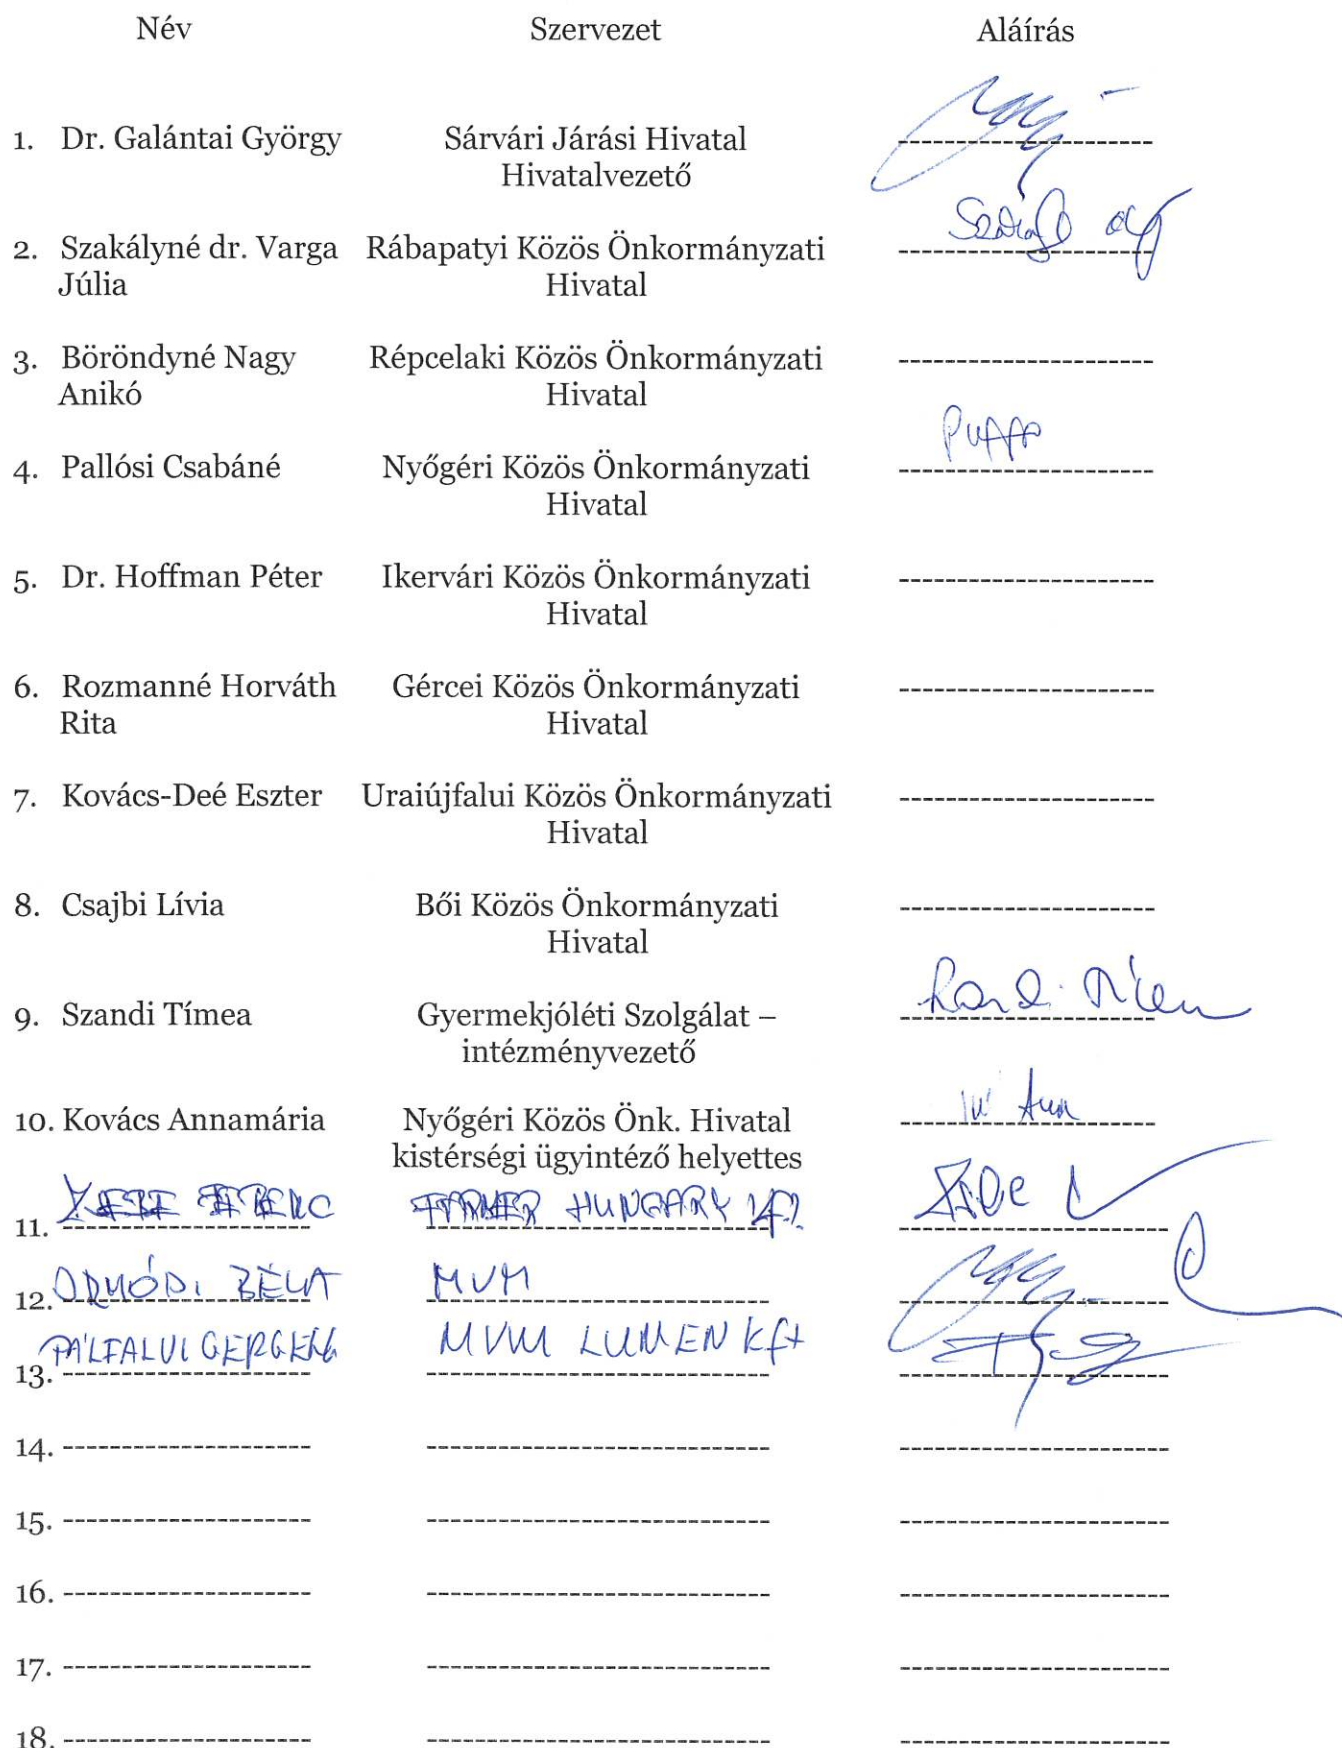 Név Szervezet Aláírás
1. Dr. Galántai György Sárvári Járási Hivatal
Hivatalvezető
2. Szakályné dr. Varga Rábapatyi Közös Önkormányzati
Júlia Hivatal
3. Böröndyné Nagy Répcelaki Közös Önkormányzati
Anikó Hivatal
4. Pallósi Csabáné Nyőgéri Közös Önkormányzati
Hivatal
5. Dr. Hoffman Péter Ikervári Közös Önkormányzati
Hivatal
6. Rozmanné Horváth Gércei Közös Önkormányzati
Rita Hivatal
7. Kovács-Deé Eszter Uraiújfalui Közös Önkormányzati
Hivatal
8. Csajbi Lívia Bői Közös Önkormányzati
Hivatal
9. Szandi Tímea Gyermekjóléti Szolgálat –
intézményvezető
10. Kovács Annamária Nyőgéri Közös Önk. Hivatal
kistérségi ügyintéző helyettes
11. HUNGARY
12. BÉLA MVM
13. PÁLFALVI GERGELY MVM LUMEN Kft
14.
15.
16.
17.
18.